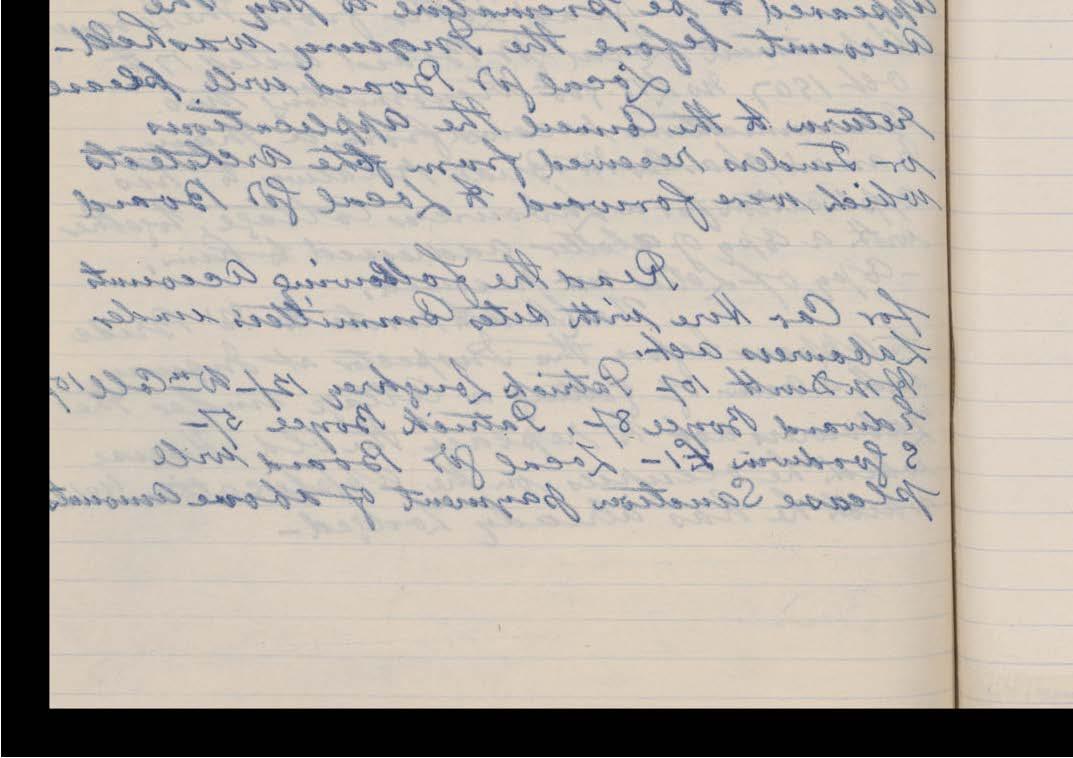 appeared to be premature to pay the
account before the Inquiry was held -
Local Gt Board will please
return to the Council the applications
or Tenders received from the architects
which were forward to Local Gt Board
Read the following accounts
for Car Hire with sites Committees under
Labourers act.
McDevitt 10/- Patrick Loughrey 12/- Wm Coll 10/
Edward Boyce 8/, Patrick Boyce 5/-
S Goodwin £1 - Local Gt Board will
please Sanction payment of above amounts